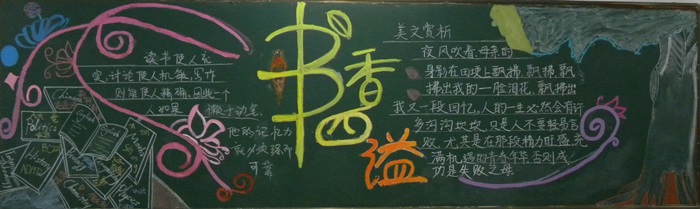 读书使人充
实,讨论使人机敏,写作
则能使人精确,因此一个
人如果
他的记忆力
可靠
书香四溢
美文赏析
夜风吹着母亲的
身影在田埂上飘拂,飘拂,飘
拂出我的一脸泪花,飘拂出
我又一段回忆,人的一生必然会有许
多沟沟坎坎,只是人不要轻易言
败,尤其是在那段精力旺盛充
满机遇的青春年华,否则成
功是失败之母
Politics
History
English